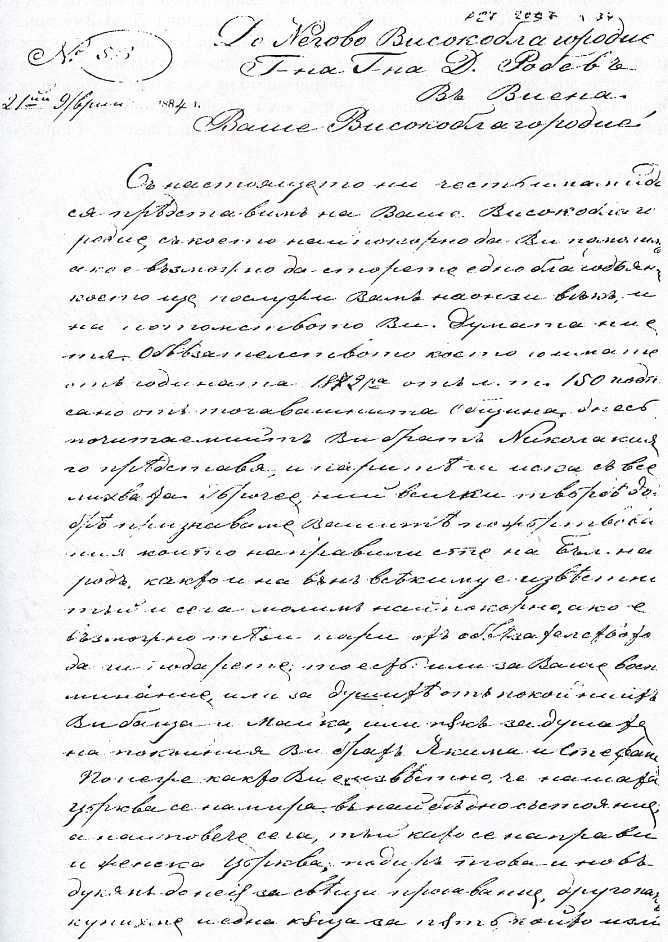 № 53
До Негово Високоблагородие
Г-на Г-на Д. Робевъ
Въ Виена.
21ий 9/врий 1884 г.
Ваше Високоблагородие!
Съ настоящето ни честь имами да
ся прѣдставимъ на Ваше Високоблаго
родие, съ което най покорно да Ви помолимъ
ако е възможно да сторете едно благодѣян
което ще послужи Вамъ на онзи вѣкъ, и
на потомството Ви. Думата ни е
тя. Обвѣзателството което то имате
отъ годината 1872ра отъ л. т. 150 подпи
сано отъ тогавашнита Община, днесъ
почитаемийтъ Ви братъ Николаки
го прѣдставя, и паритѣ ги иска съ все
лихва. Прочее, ний всички твърдѣ до
брѣ признаваме Вашитѣ пожъртвова
ния които направили сте на Бъл. на
родъ, както и на вънъ всѣкиму е извѣстни
тъй и сега молимъ най покорно, ако е
възможно тѣзи пари отъ обвѣзателството
да ги подарете, тоестъ: или за Ваше восп
минание, или за душитѣ отъ покойнитѣ
Ви баща и Майка, или пѫкъ за душата
на покойния Ви братъ Якима и Стефанъ
Понеже както Ви е извѣстно, че нашата
църква се намира въ най бѣдно състояние,
а най повече сега, тъй като се направи
и женска църква, подиръ това и новъ
дукянъ за свѣщи продавание, друго
купихме и една кѫща за пѫтъ който